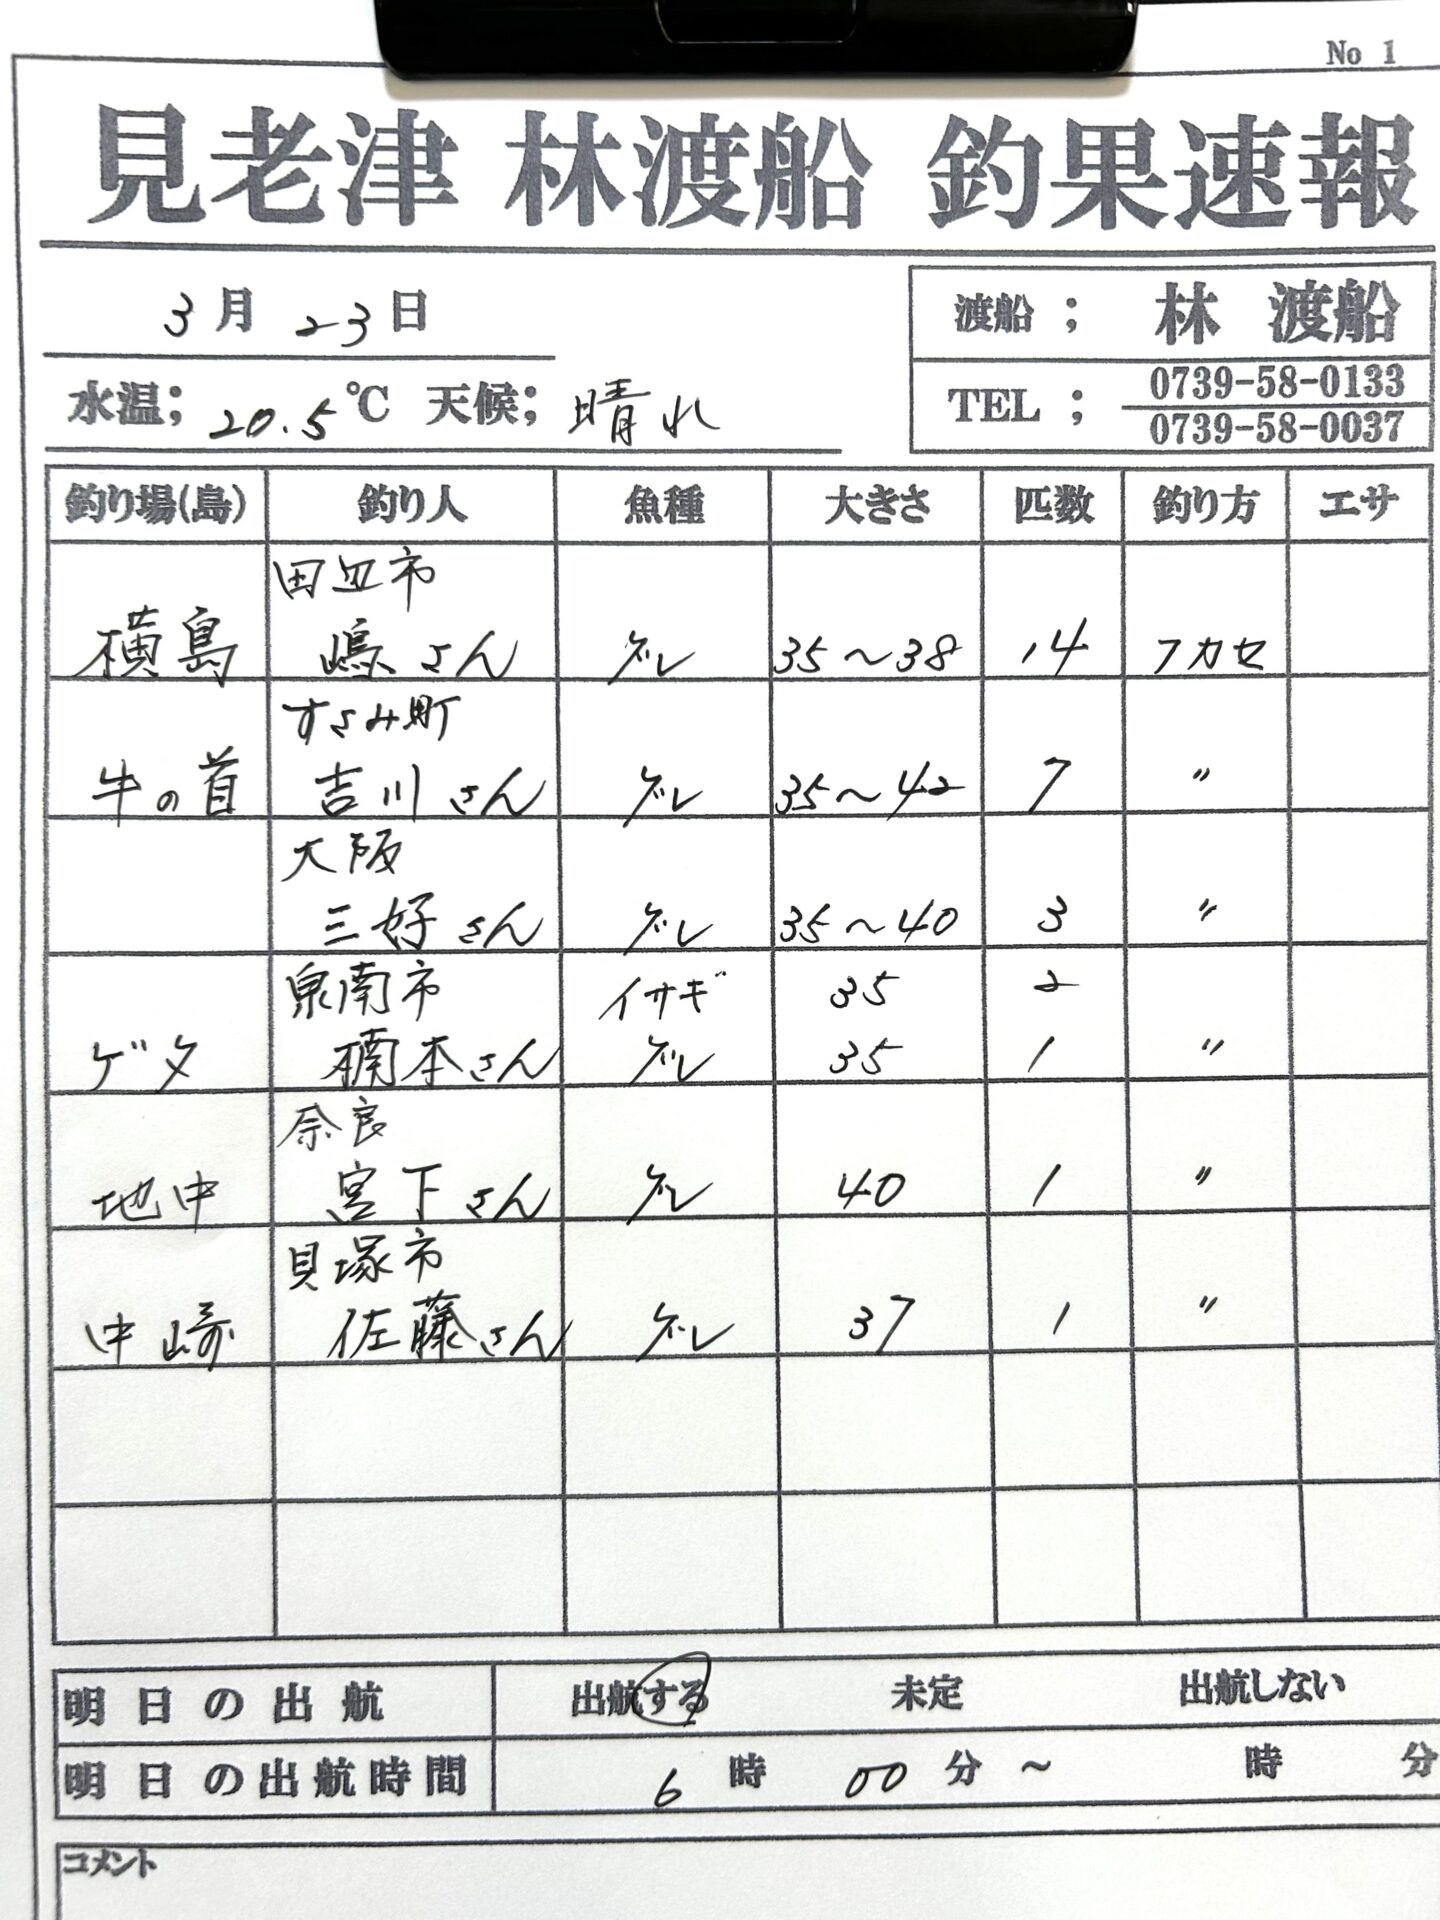 No 1
見老津 林渡船 釣果速報
3月 23日
渡船 ; 林 渡船
水温; 20.5 ℃ 天候; 晴れ
TEL ; 0739-58-0133
0739-58-0037
釣り場(島) 釣り人 魚種 大きさ 匹数 釣り方 エサ
田辺市
横島 嶋さん グレ 35〜38 14 フカセ
すさみ町
牛の首 吉川さん グレ 35〜42 7 〃
大阪
三好さん グレ 35〜40 3 〃
泉南市 イサギ 35 2
ゲタ 楠本さん グレ 35 1 〃
奈良
地中 宮下さん グレ 40 1 〃
貝塚市
中崎 佐藤さん グレ 37 1 〃
明日の出航 出航する 未定 出航しない
明日の出航時間 6 時 00 分 ~ 時 分
コメント